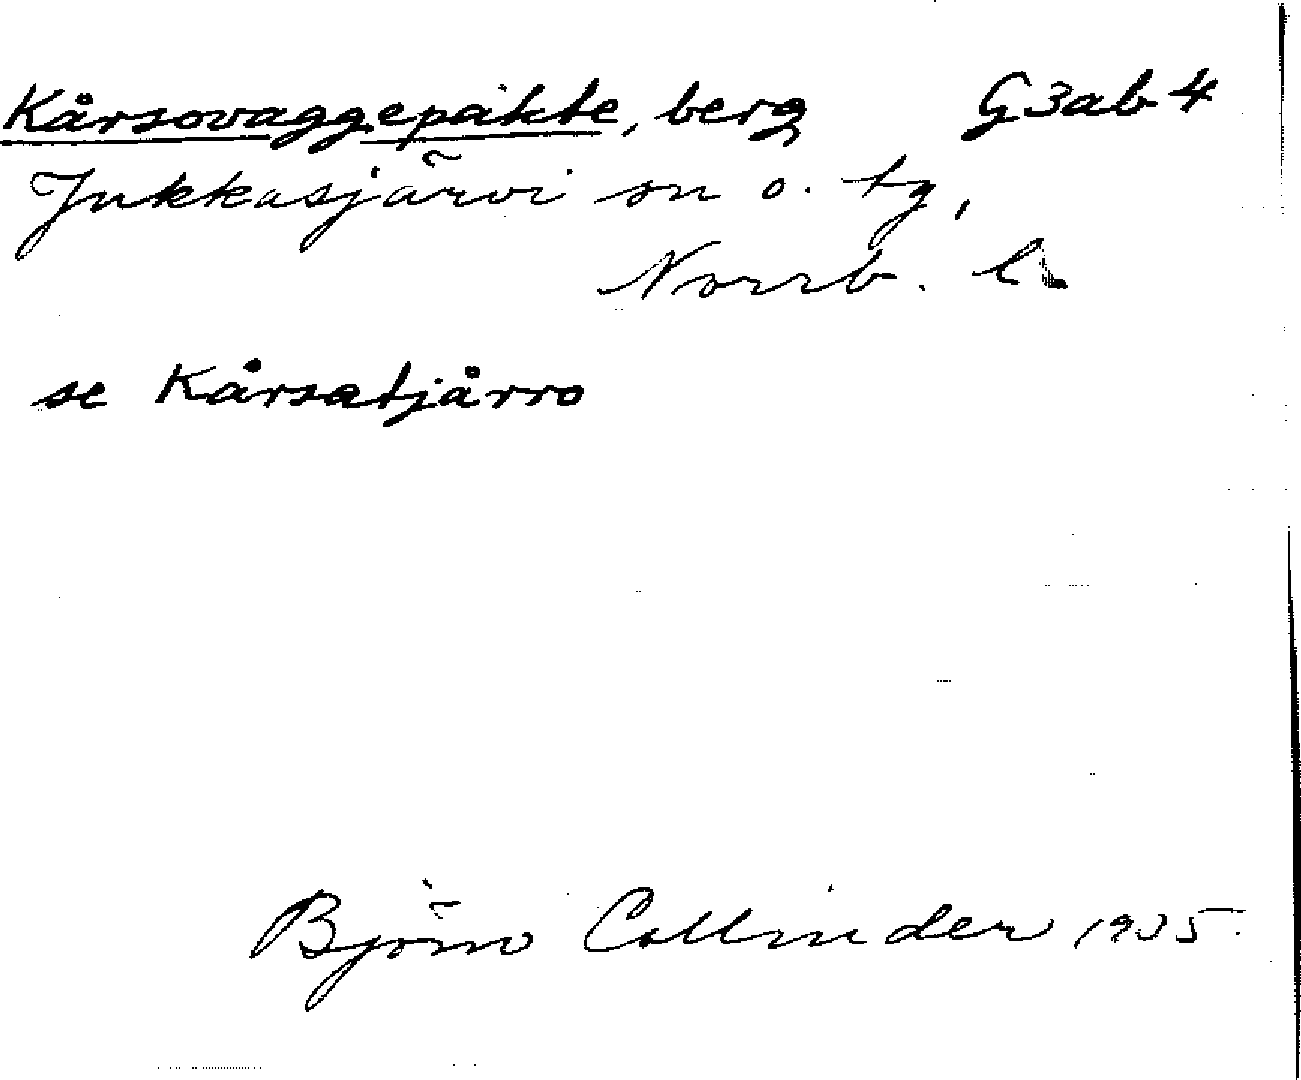 Kårsovaggepakte, berg G3ab4
Jukkasjärvi sn o. tg,
Norrb. l.
se Kårsatjårro
Björn Collinder 1935.